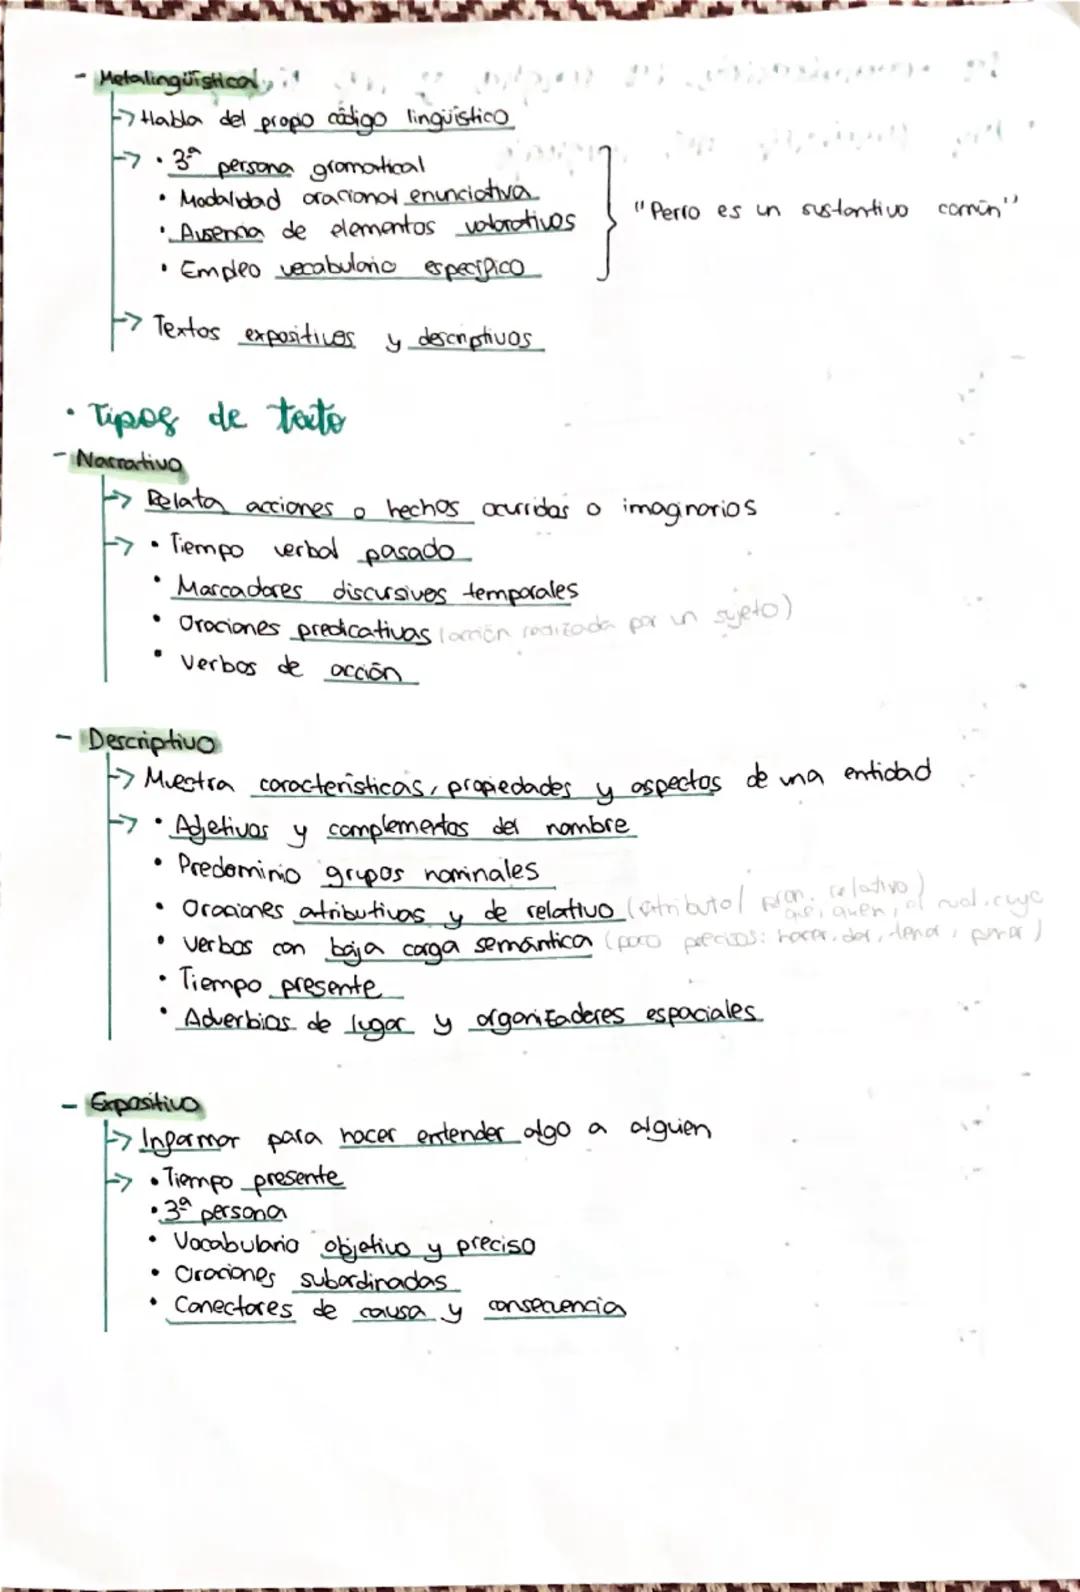 - Metalingüística
→ Habla del propo código lingüístico
→ • 3ª persona gramatical
• Modalidad oracional enunciativa
• Ausencia de elementos valorativos
• Empleo vocabulario específico
"Perro es un sustantivo común"
→ Textos expositivos y descriptivos
• Tipos de texto
- Narrativo
→ Relata acciones o hechos ocurridas o imaginarios
→ • Tiempo verbal pasado
• Marcadores discursivos temporales
• Oraciones predicativas (acción realizada por un sujeto)
• Verbos de acción
- Descriptivo
→ Muestra características, propiedades y aspectos de una entidad
→ • Adjetivos y complementos del nombre
• Predominio grupos nominales
• Oraciones atributivas y de relativo (atributo/ pron. relativo)
que, quien, el cual, cuyo
• Verbos con baja carga semántica (poco precisos: hacer, dar, tener, poner)
• Tiempo presente
• Adverbios de lugar y organizadores espaciales
- Expositivo
→ Informar para hacer entender algo a alguien
→ • Tiempo presente
• 3ª persona
• Vocabulario objetivo y preciso
• Oraciones subordinadas
• Conectores de causa y consecuencia